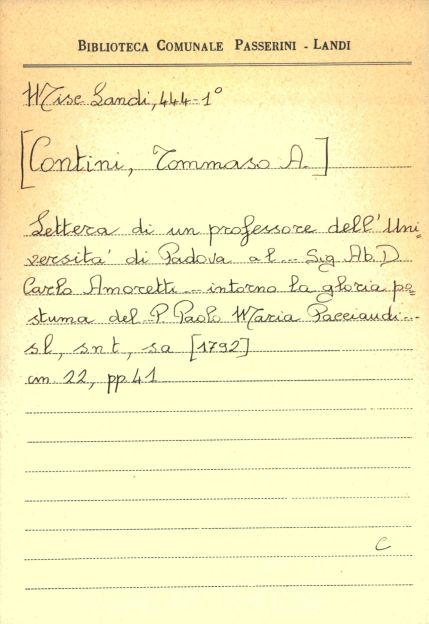 BIBLIOTECA COMUNALE PASSERINI - LANDI
Misc Landi, 444-1°
[Contini, Tommaso A.]
Lettera di un professore dell'Uni-
versità di Padova al... Sig. Ab. D.
Carlo Amoretti... intorno la gloria po-
stuma del P. Paolo Maria Pacciaudi...
sl, snt, sa [1792]
cm 22, pp. 41
C